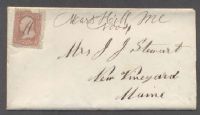 Mars Hill Me
Mrs J J Stewart
New Vineyard
Maine